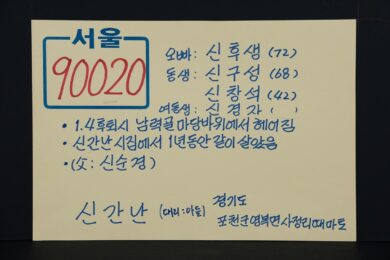 서울
90020
오빠: 신후생 (72)
동생: 신구성 (68)
신창석 (42)
여동생: 신경자 ( )
• 1.4후퇴시 남력골 마당바위에서 헤어짐
• 신간난 시집에서 1년동안 같이 살았음
• (父: 신순경)
신간난 (대리:아들) 경기도
포천군영북면사정리때마토